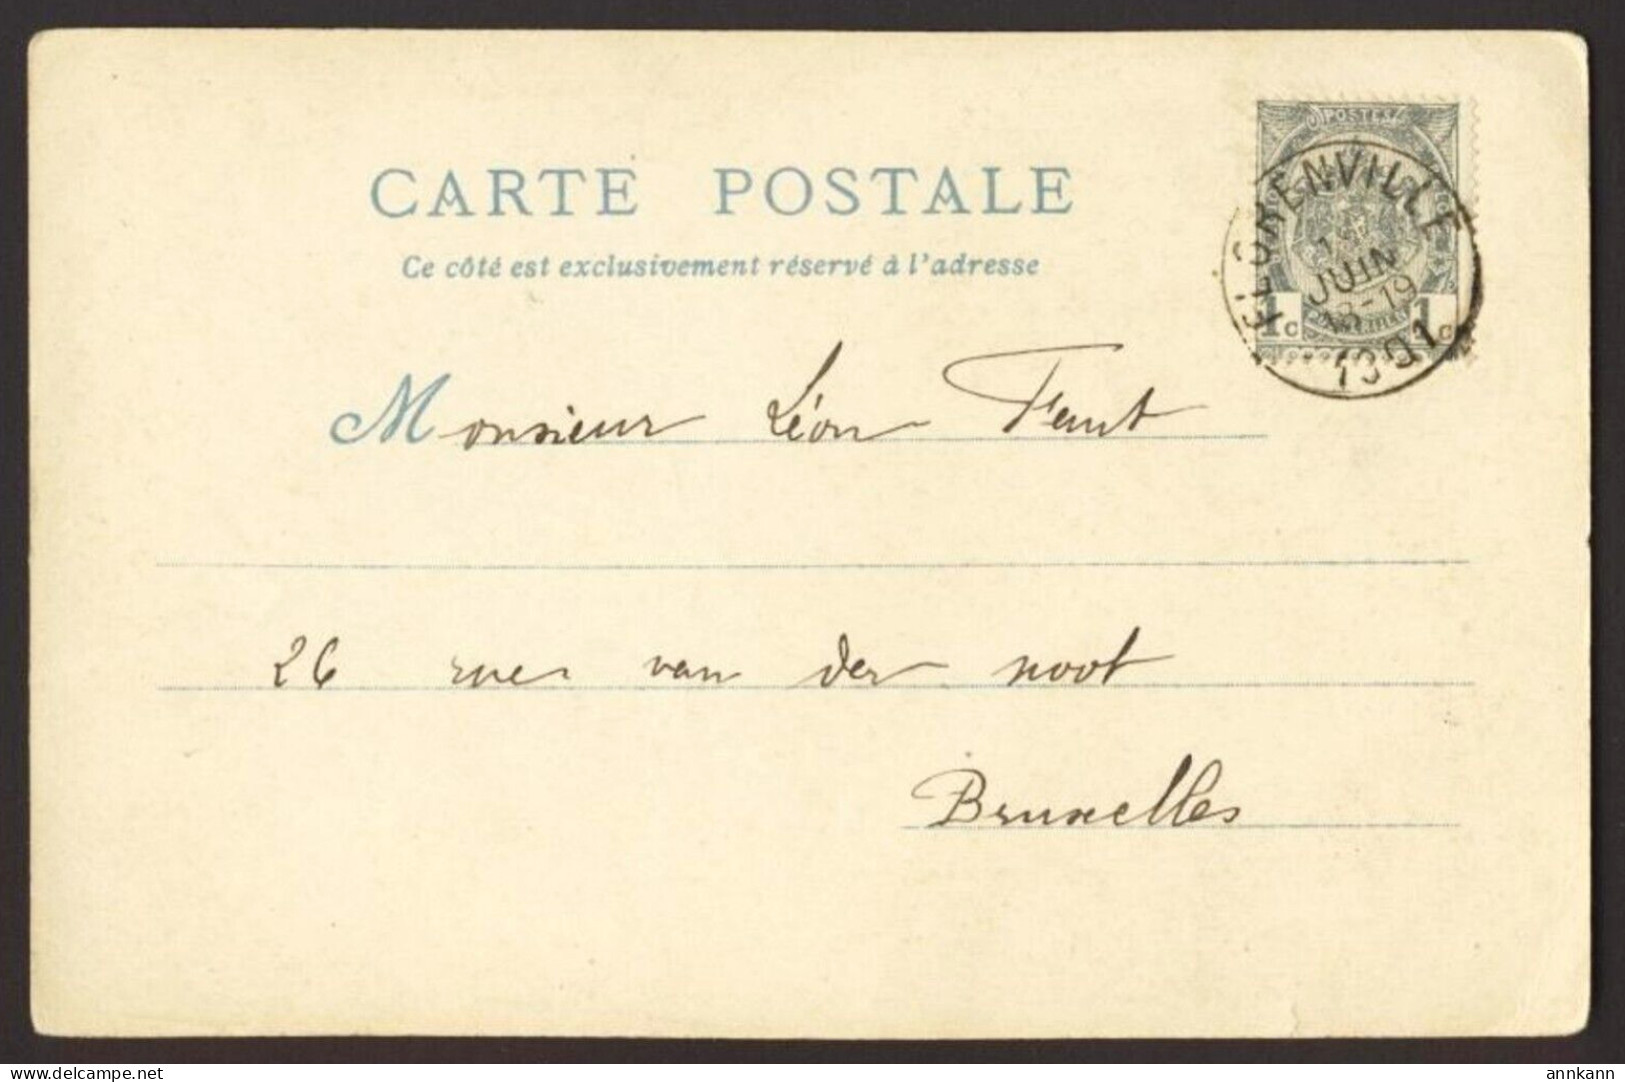 POSTES
CARTE POSTALE
Ce côté est exclusivement réservé à l'adresse
FLORENVILLE
JUIN
18-19
1901
1c 1c
Monsieur Léon
26 rue van der noot
Bruxelles
delcampe.net
annkann